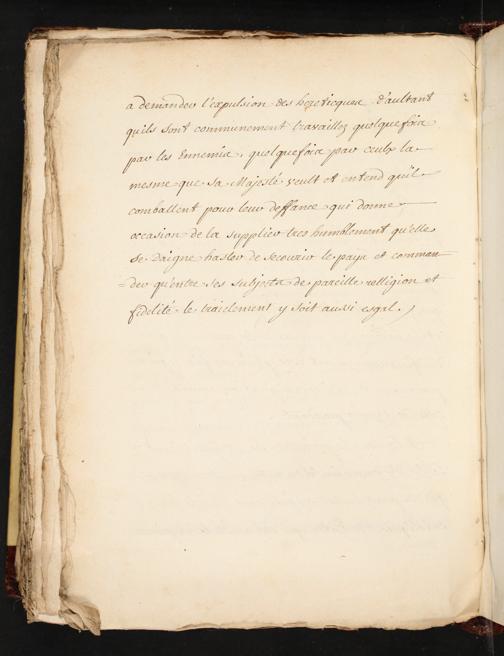 a demander l'expulsion des hereticques d'aultant
quils sont communement travaillez quelquefois
par les Ennemis, quelquefois par ceulx la
mesme que sa Majesté veult et entend qu'ils
combattent pour leur deffance, qui donne
occasion de la supplier tres humblement qu'elle
se daigne haster de secourir le pays et comman
=der qu'entre ses subjects de pareille relligion et
fidelité le traictement y soit aussi esgal.